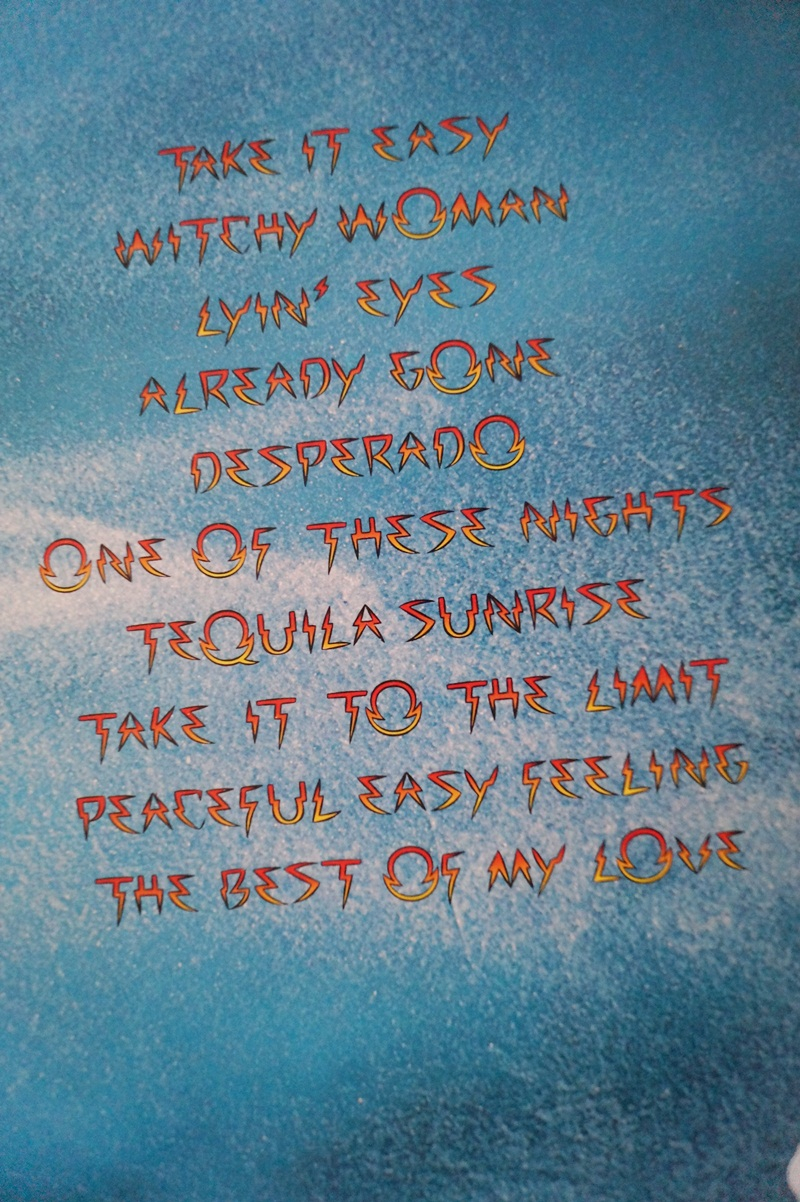 TAKE IT EASY
WITCHY WOMAN
LYIN' EYES
ALREADY GONE
DESPERADO
ONE OF THESE NIGHTS
TEQUILA SUNRISE
TAKE IT TO THE LIMIT
PEACEFUL EASY FEELING
THE BEST OF MY LOVE